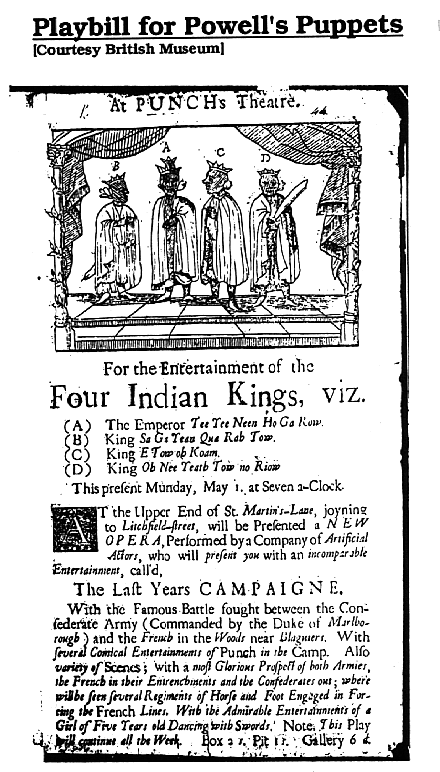 Playbill for Powell's Puppets
[Courtesy British Museum]
At PUNCHs Theatre.
B
A
C
D
For the Entertainment of the
Four Indian Kings, viz.
(A) The Emperor Tee Tee Neen Ho Ga Row.
(B) King Sa Ga Yean Qua Rah Tow.
(C) King E Tow oh Koam.
(D) King Oh Nee Yeath Tow no Riow
This present Munday, May 1. at Seven a-Clock.
AT the Upper End of St. Martin's-Lane, joyning
to Litchfield-street, will be Presented a NEW
OPERA, Performed by a Company of Artificial
Actors, who will present you with an incomparable
Entertainment, call'd,
The Last Years CAMPAIGNE,
With the Famous Battle fought between the Con-
federate Army (Commanded by the Duke of Marlbo-
rough) and the French in the Woods near Blaguiers. With
several Comical Entertainments of Punch in the Camp. Also
variety of Scenes; with a most Glorious Prospect of both Armies,
the French in their Entrenchments and the Confederates out; where
will be seen several Regiments of Horse and Foot Engaged in For-
cing the French Lines. With the Admirable Entertainments of a
Girl of Five Years old Dancing with Swords. Note, This Play
will continue all the Week. Box 2 s. Pit 1 s. Gallery 6 d.